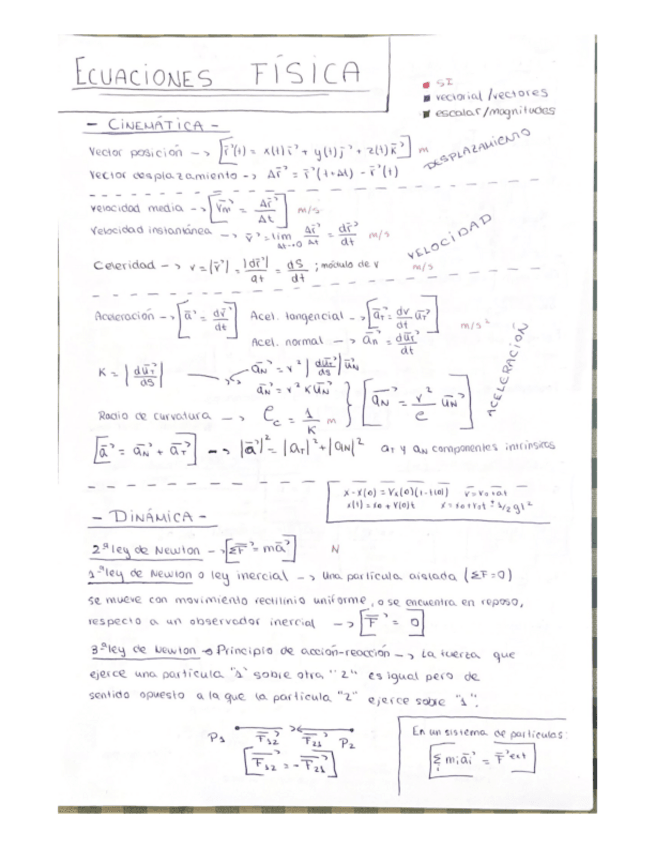 ECUACIONES FÍSICA
SI
vectorial/vectores
escalar/magnitudes
- CINEMÁTICA -
Vector posición -> [r⃗(t) = x(t)i⃗ + y(t)j⃗ + z(t)k⃗] m
DESPLAZAMIENTO
Vector desplazamiento -> Δr⃗ = r⃗(t+Δt) - r⃗(t)
velocidad media -> [v⃗m = Δr⃗/Δt] m/s
Velocidad instantánea -> v⃗ = lim Δt->0 Δr⃗/Δt = dr⃗/dt m/s
VELOCIDAD
Celeridad -> v = |v⃗| = |dr⃗|/dt = dS/dt ; módulo de v m/s
Aceleración -> [a⃗ = dv⃗/dt] Acel. tangencial -> [a⃗T = dv/dt u⃗T] m/s²
Acel. normal -> a⃗N = du⃗T/dt
ACELERACIÓN
K = |du⃗T/dS| -> a⃗N = v² |du⃗T/dS| u⃗N
a⃗N = v² K u⃗N } [a⃗N = v²/ρ u⃗N]
Radio de curvatura -> ρc = 1/K m
[a⃗ = a⃗N + a⃗T] -> |a⃗|² = |aT|² + |aN|² aT y aN componentes intrínsecas
- DINÁMICA -
2ª ley de Newton -> [ΣF⃗ = ma⃗] N
1ª ley de Newton o ley inercial -> Una partícula aislada (ΣF=0)
se mueve con movimiento rectilinio uniforme, o se encuentra en reposo,
respecto a un observador inercial -> [F⃗ = 0]
3ª ley de Newton -> Principio de acción-reacción -> La fuerza que
ejerce una partícula "1" sobre otra "2" es igual pero de
sentido opuesto a la que la partícula "2" ejerce sobre "1".
P1 F⃗12 F⃗21 P2
[F⃗12 = -F⃗21]
En un sistema de partículas:
[Σi mi a⃗i = F⃗ext]